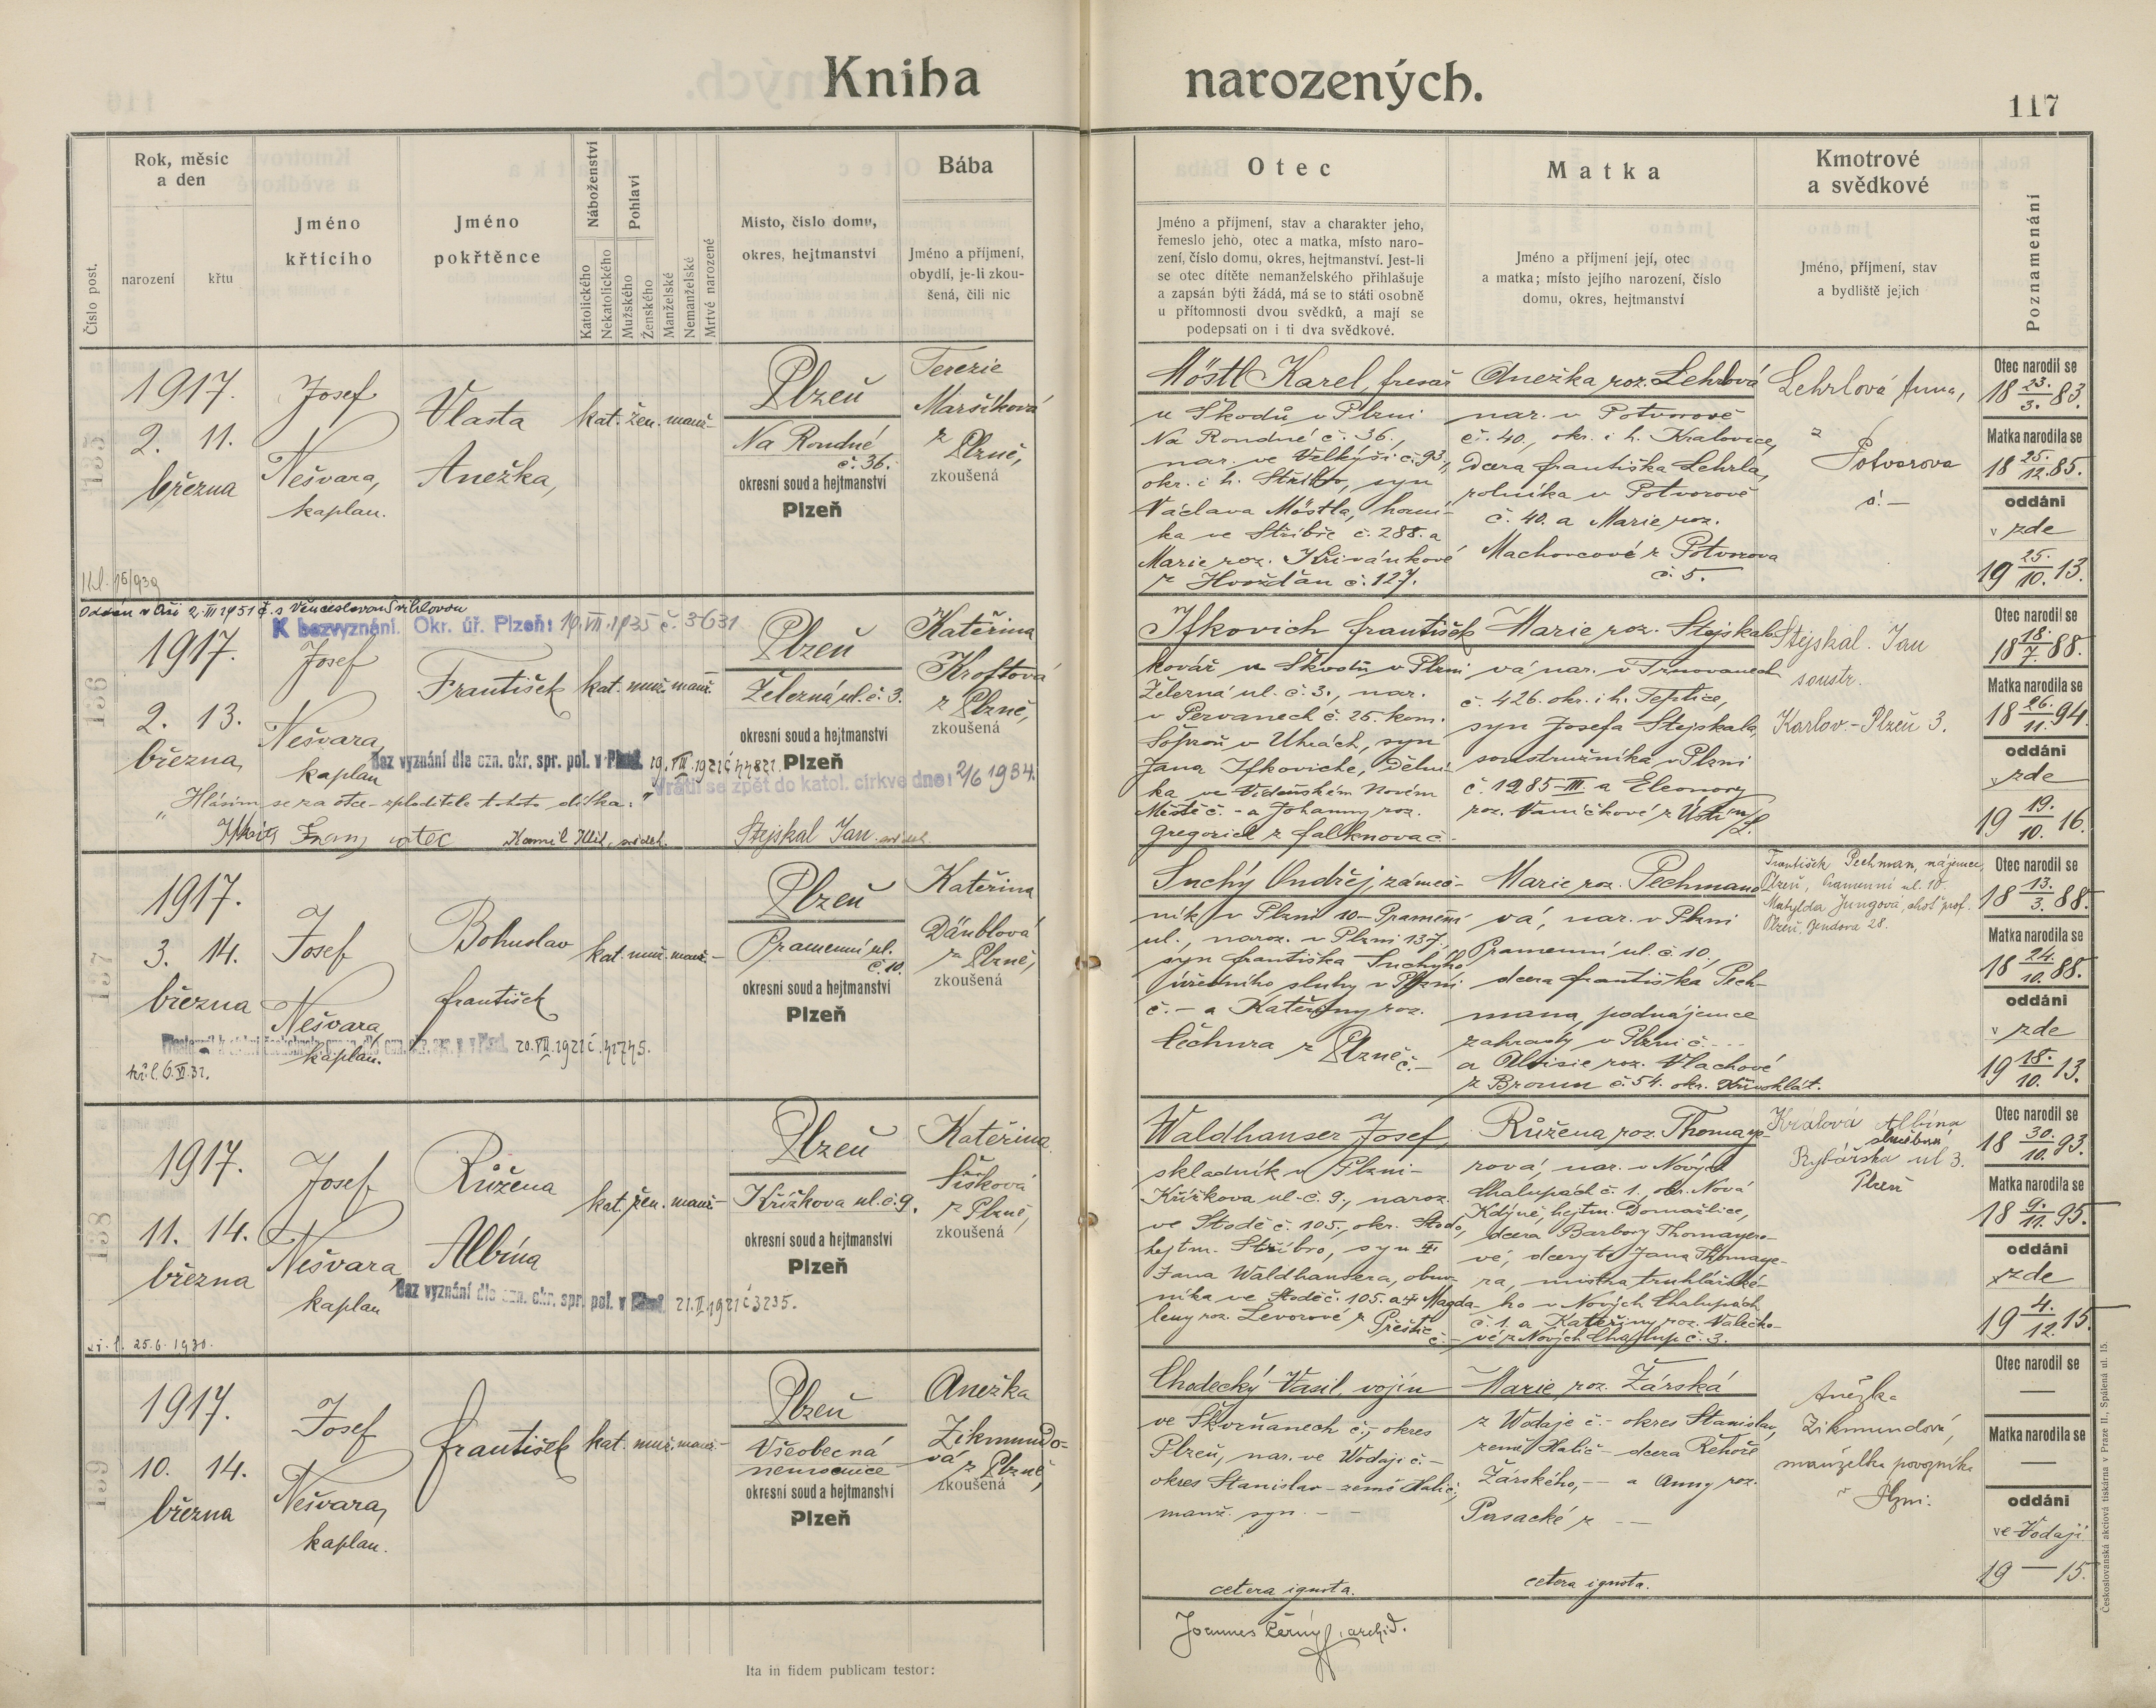 Kniha narozených.
117
Číslo post.
Rok, měsíc
a den
narození
křtu
Jméno
křtícího
Jméno
pokřtěnce
Náboženství
Katolického
Nekatolického
Pohlaví
Mužského
Ženského
Manželské
Nemanželské
Mrtvě narozené
Místo, číslo domu,
okres, hejtmanství
Bába
Jméno a příjmení,
obydlí, je-li zkou-
šená, čili nic
Otec
Jméno a příjmení, stav a charakter jeho,
řemeslo jeho, otec a matka, místo naro-
zení, číslo domu, okres, hejtmanství. Jest-li
se otec dítěte nemanželského přihlašuje
a zapsán býti žádá, má se to státi osobně
u přítomnosti dvou svědků, a mají se
podepsati on i ti dva svědkové.
Matka
Jméno a příjmení její, otec
a matka; místo jejího narození, číslo
domu, okres, hejtmanství
Kmotrové
a svědkové
Jméno, příjmení, stav
a bydliště jejich
Poznamenání
135
1917.
2. 11.
března
Josef
Nešvara,
kaplan.
Vlasta
Anežka,
kat. žen. manž-
Plzeň
Na Rondné
č. 36.
okresní soud a hejtmanství
Plzeň
Terezie
Maršíková
z Plzně,
zkoušená
Möstl Karel, fresař
u Škodů v Plzni
Na Rondné č. 36.,
nar. ve Velkýši č. 93.,
okr. i h. Stříbro, syn
Václava Möstla, horní-
ka ve Stříbře č. 288. a
Marie roz. Křivánkové
z Hvožďan č. 127.
Anežka roz. Lehrlová
nar. v Potvorově
č. 40., okr. i h. Kralovice,
dcera Františka Lehrla,
rolníka v Potvorově
č. 40. a Marie roz.
Machovcové z Potvorova
č. 5.
Lehrlová Anna,
z
Potvorova
č. -
Otec narodil se
18 23./3. 83.
Matka narodila se
18 25./12. 85.
oddáni
v zde
19 25./10. 13.
136
Oddán v Aši 2. III 1951 s Věnceslavou Švihlovou
K bezvyznání. Okr. úř. Plzeň: 19. VII. 1935 č. 3631
1917.
2. 13.
března,
Josef
Nešvara,
kaplan
František
kat. muž. manž.
Plzeň
Železná ul. č. 3.
okresní soud a hejtmanství
Plzeň
Kateřina
Kroftová
z Plzně,
zkoušená
Bez vyznání dle ozn. okr. spr. pol. v Plzni
Vrátil se zpět do katol. církve dne: 2/6 1934.
„Hlásím se za otce-zploditele tohoto dítka:"
Stejskal Jan svědek.
Ifkovich František
kovář u Škodů v Plzni
Železná ul. č. 3., nar.
v Pervanech č. 25. kom.
Šoproň v Uhrách, syn
Jana Ifkoviche, dělní-
ka ve Vídeňském Novém
Městě č. - a Johanny roz.
Gregorich z Falknova č. -
Marie roz. Stejskalo-
vá nar. v Trnovanech
č. 426. okr. i h. Teplice,
syn Josefa Stejskala,
soustružníka v Plzni
č. 1985-III. a Eleonory
roz. Vaníčkové z Ústí n/L.
Stejskal. Jan
soustr.
Karlov.- Plzeň 3.
Otec narodil se
18 18./7. 88.
Matka narodila se
18 26./11. 94.
oddáni
v zde
19 19./10. 16.
137
1917.
3. 14.
března
Josef
Nešvara,
kaplan.
Bohuslav
František
kat. muž. manž.-
Plzeň
Pramenní ul.
č. 10.
okresní soud a hejtmanství
Plzeň
Kateřina
Däublová
z Plzně,
zkoušená
Suchý Ondřej, zámeč-
ník v Plzni 10-Pramenní
ul., naroz. v Plzni 137,
syn Františka Suchýho
úředního sluhy v Plzni
č. - a Kateřiny roz.
Čechura z Plzně č. -
Marie roz. Pechmano-
vá, nar. v Plzni
Pramenní ul. č. 10.,
dcera Františka Pech-
mana, podnájemce
zahrady v Plzni č. ---
a Aloisie roz. Vlachové
z Broum č. 54. okr. Křivoklát.
František Pechman, nájemce,
Plzeň, Pramenní ul. 10.
Matylda Jungová, choť prof.
Plzeň, Jendova 28.
Otec narodil se
18 13./3. 88.
Matka narodila se
18 24./10. 88.
oddáni
v zde
19 18./10. 13.
138
1917.
11. 14.
března
Josef
Nešvara
kaplan
Růžena
Albína
kat. žen. manž-
Plzeň
Křížkova ul. č. 9.
okresní soud a hejtmanství
Plzeň
Kateřina
Šišková
z Plzně,
zkoušená
Bez vyznání dle ozn. okr. spr. pol. v Plzni 21. II 1921 č 3235.
25.6. 1930.
Waldhauser Josef,
skladník v Plzni-
Křížkova ul. č. 9., naroz.
ve Stodě č. 105., okr. Stod,
hejtm. Stříbro, syn †
Jana Waldhausera, obuv-
níka ve Stodě č. 105. a † Magda-
leny roz. Levorové z Přeštic č. -
Růžena roz. Thomaye-
rová, nar. v Nových
Chalupách č. 1., okr. Nová
Kdyně, hejtm. Domažlice,
dcera Barbory Thomayero-
vé, dcery † Jana Thomaye-
ra, mistra truhlářské-
ho v Nových Chalupách
č. 1. a Kateřiny roz. Valečko-
vé z Nových Chalup č. 3.
Králová Albína
služebná
Rybářská ul 3.
Plzeň
Otec narodil se
18 30./10. 93.
Matka narodila se
18 9./11. 95.
oddáni
v zde
19 4./12. 15.
139
1917.
10. 14.
března
Josef
Nešvara,
kaplan.
František
kat. muž. manž-
Plzeň
Všeobecná
nemocnice
okresní soud a hejtmanství
Plzeň
Anežka
Zikmundo-
vá z Plzně,
zkoušená
Chodecký Vasil, vojín
ve Škvrňanech č.-, okres
Plzeň, nar. ve Wodaji č. -
okres Stanislav - země Halič,
manž. syn. - -
cetera ignota.
Marie roz. Žárská
z Wodaje č. - okres Stanislav,
země Halič - dcera Řehoře
Žárského, -- a Anny roz.
Pasacké z --
cetera ignota.
Anežka
Zikmundová,
manželka povozníka
v Plzni.
Otec narodil se
—
Matka narodila se
—
oddáni
ve Vodaji
19 — 15.
Joannes Černý, archid.
Ita in fidem publicam testor:
Českoslovanská akciová tiskárna v Praze II., Spálená ul. 15.